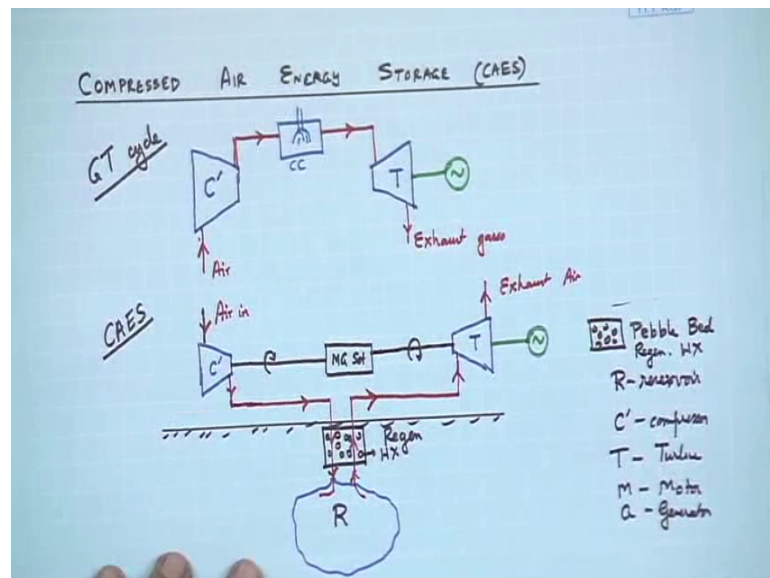 COMPRESSED AIR ENERGY STORAGE (CAES)
GT cycle
C'
CC
T
~
Exhaust gases
Air
CAES
Air in
Exhaust Air
C'
MG Set
T
~
Regen
HX
R
Pebble Bed
Regen. HX
R-reservoir
C' - compressor
T - Turbine
M - Motor
G - Generator